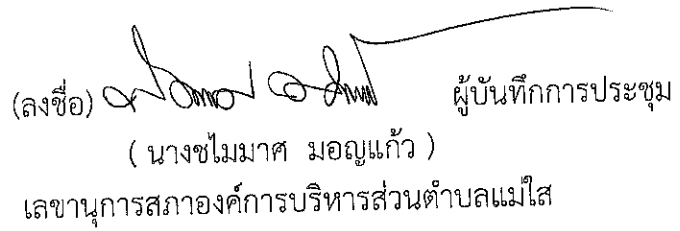 (ลงชื่อ) ผู้บันทึกการประชุม
( นางชไมมาศ มอญแก้ว )
เลขานุการสภาองค์การบริหารส่วนตำบลแม่ใส